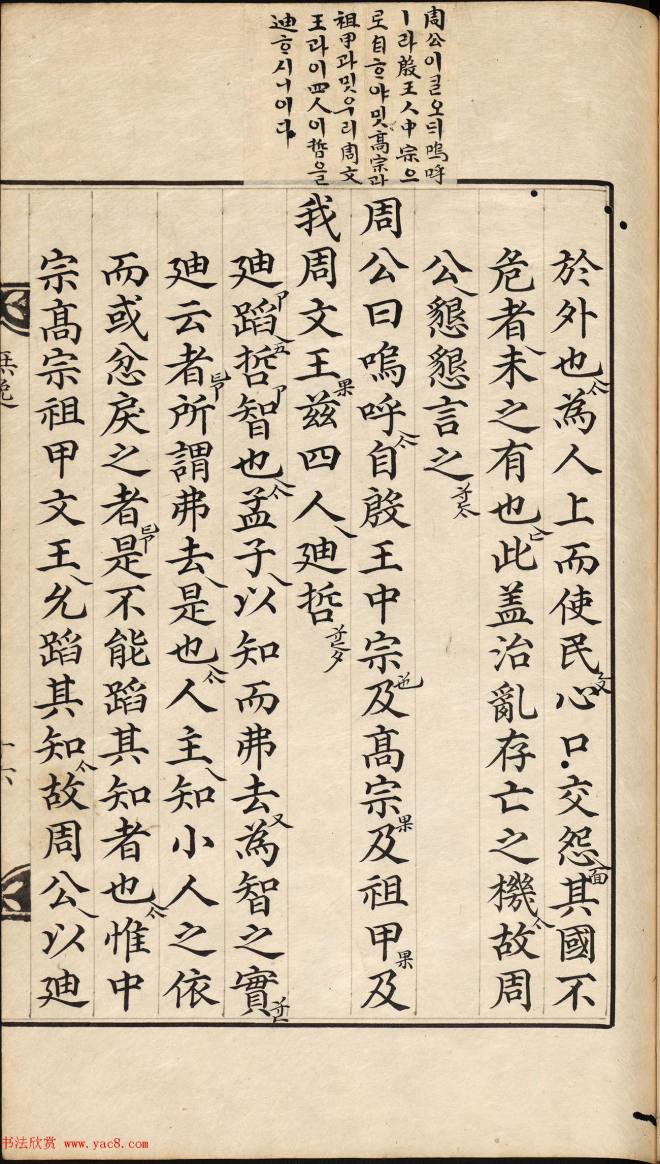 周公이ᄀᆞᆯᄋᆞ샤ᄃᆡ嗚呼
ㅣ라殷王人中宗으
로自ᄒᆞ야밋高宗과
祖甲과밋우리周文
王과이四人이哲을
迪ᄒᆞ시니이다
於外也為人上而使民心口交怨其國不
危者未之有也此盖治亂存亡之機故周
公懇懇言之
周公曰嗚呼自殷王中宗及高宗及祖甲及
我周文王兹四人迪哲
迪蹈哲智也孟子以知而弗去為智之實
迪云者所謂弗去是也人主知小人之依
而或忿戾之者是不能蹈其知者也惟中
宗高宗祖甲文王允蹈其知故周公以迪
無逸
十六
书法欣赏 www.yac8.com